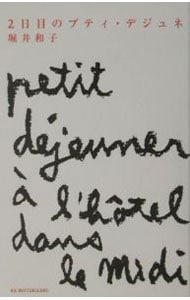 2日目のプティ・デジュネ
堀井和子
petit
déjeuner
à l'hôtel
dans
le midi